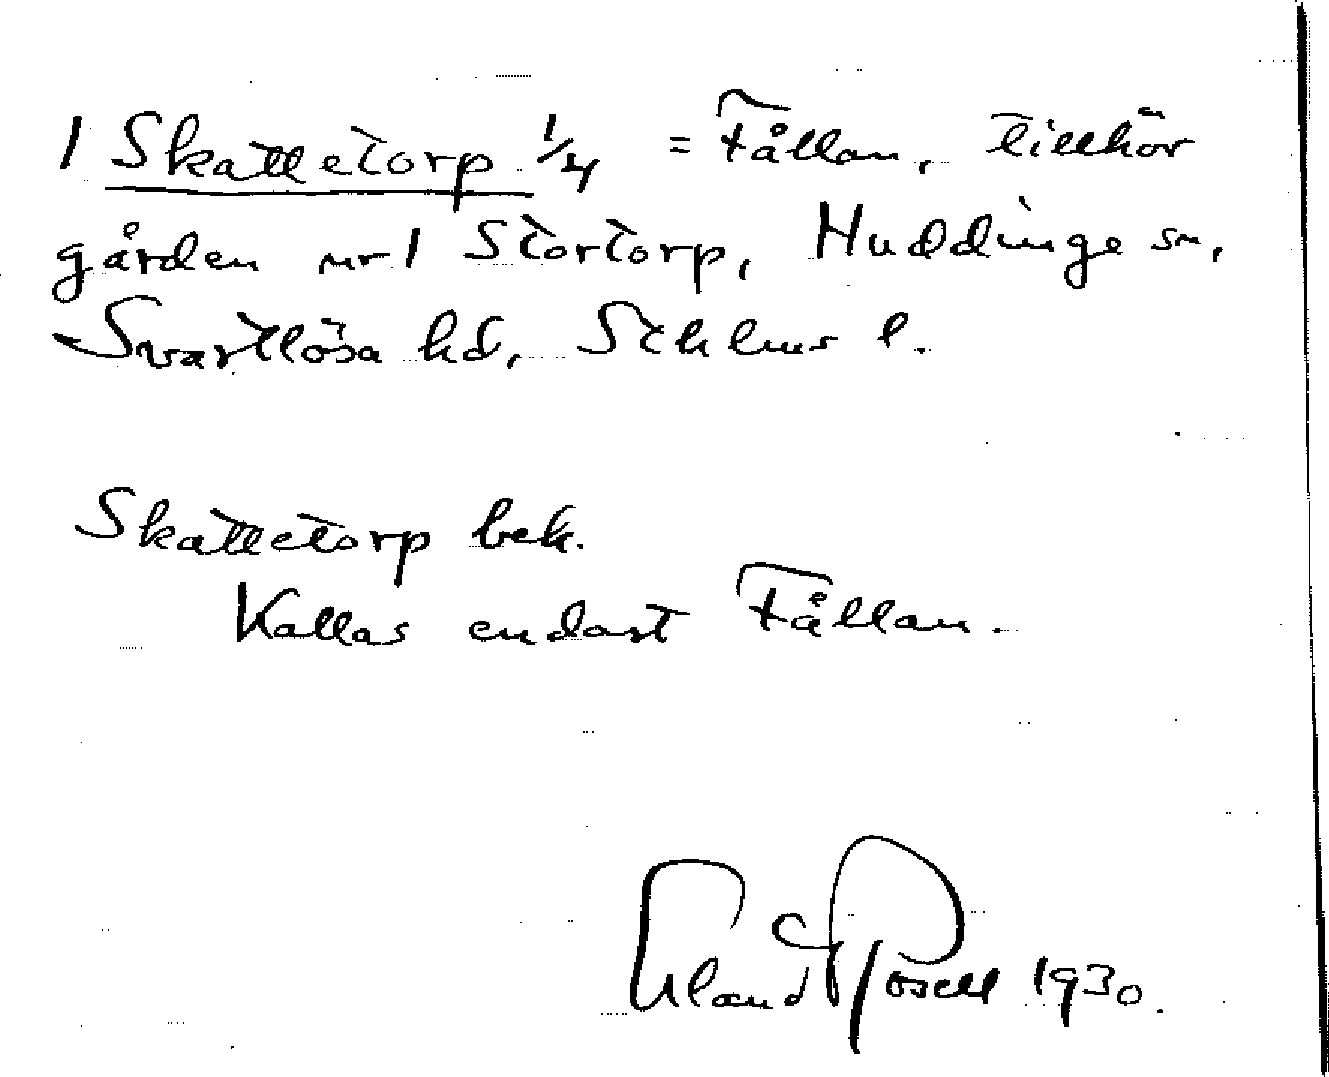 1 Skattetorp 1/4 = Fållan, tillhör
gården nr 1 Stortorp, Huddinge sn,
Svartlösa hd, Sthlms l.
Skattetorp bek.
Kallas endast Fållan.
Erland Rosell 1930.